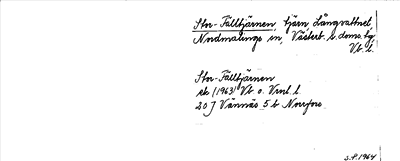 Stor-Fälltjärnen, tjärn Långvattnet,
Nordmalings sn, Västerb. s. doms. tg,
Vb. l.
Stor-Fälltjärnen
ek (1963) Vb o. Vrnl. l
20 J Vännäs 5 b Norrfors
S.F. 1964